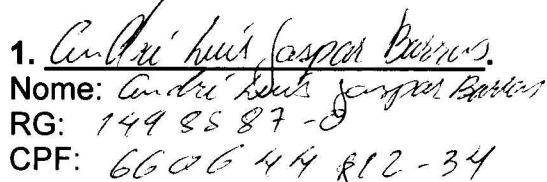 1. André Luis Gaspar Barros.
Nome: André Luis Gaspar Barros
RG: 1498587-0
CPF: 660644812-34